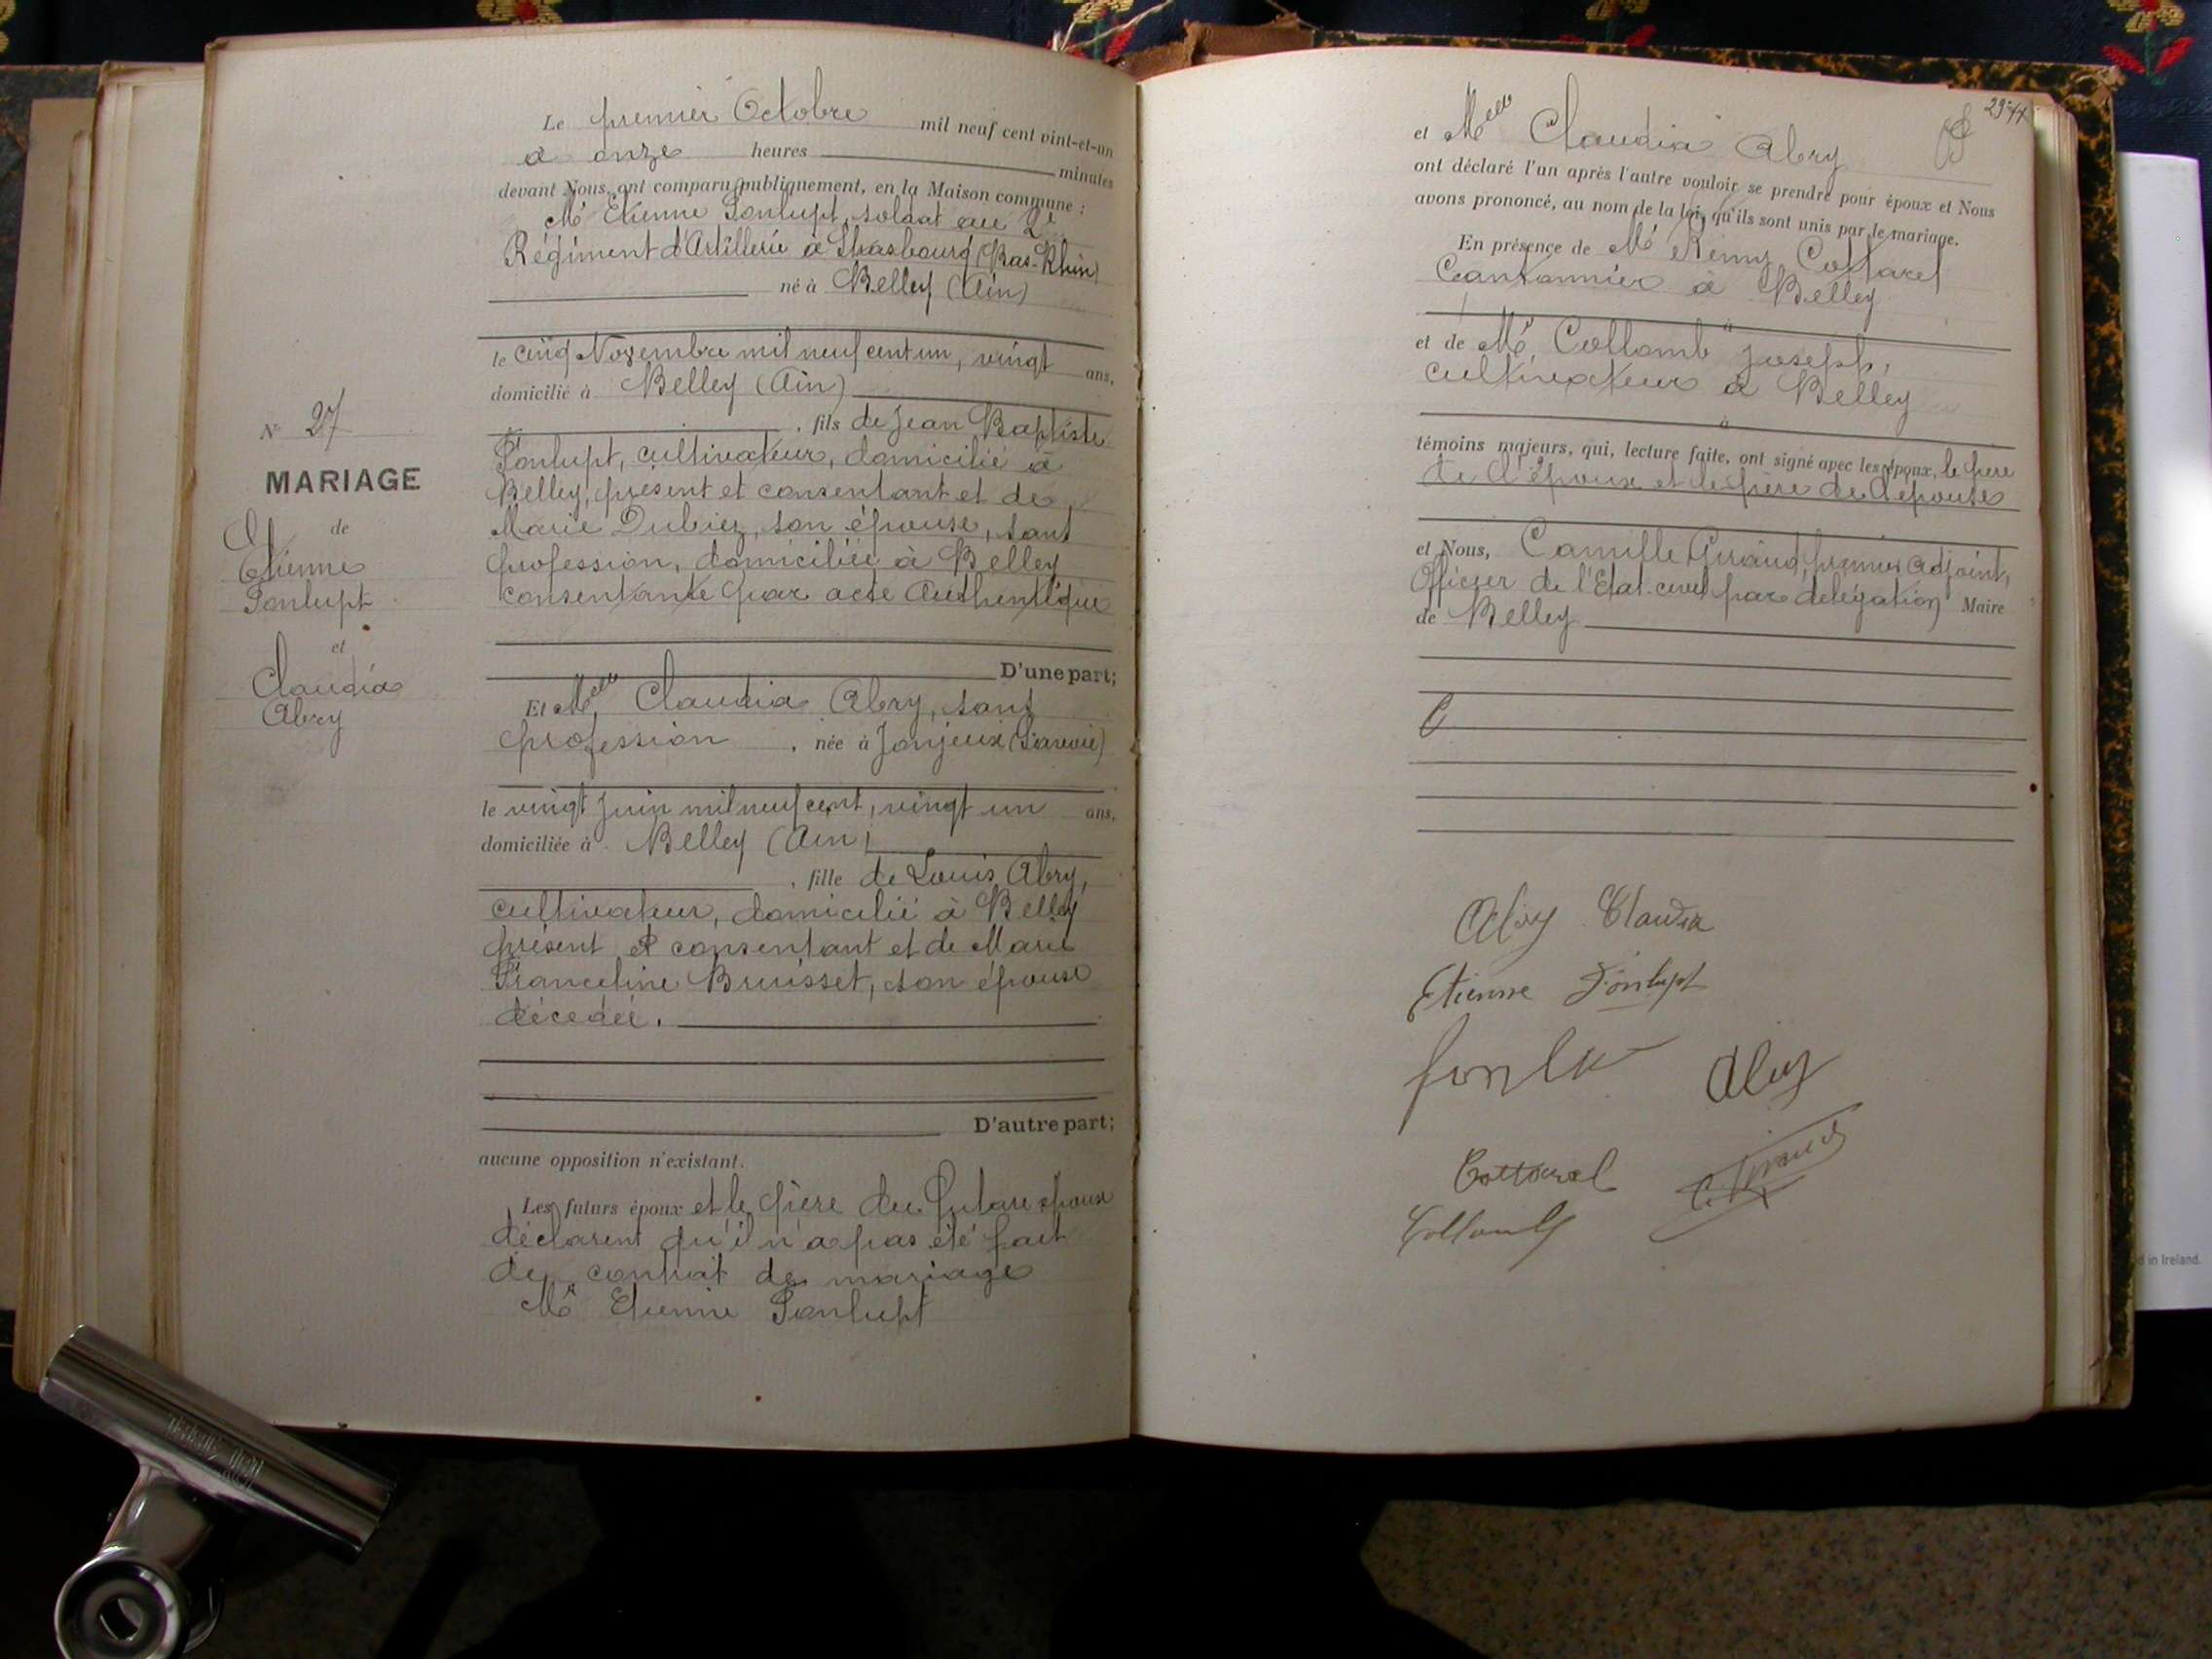 Le premier Octobre mil neuf cent vint-et-un
à onze heures minutes
devant Nous, ont comparu publiquement, en la Maison commune :
Mr Etienne Fonlupt, soldat au 2e
Régiment d'Artillerie à Strasbourg (Bas-Rhin)
né à Belley (Ain)
le cinq Novembre mil neuf cent un, vingt ans,
domicilié à Belley (Ain)
, fils de Jean Baptiste
Fonlupt, cultivateur, domicilié à
Belley, présent et consentant et de
Marie Dubiez, son épouse, sans
profession, domiciliée à Belley
consentante par acte Authentique
D'une part;
Et Melle Claudia Abry, sans
profession, née à Jonjeux (Savoie)
le vingt Juin mil neuf cent, vingt un ans,
domiciliée à Belley (Ain)
, fille de Louis Abry,
cultivateur, domicilié à Belley
présent et consentant et de Marie
Franceline Bruisset, son épouse
décédée.
D'autre part;
aucune opposition n'existant.
Les futurs époux et le père du futur époux
déclarent qu'il n'a pas été fait
de contrat de mariage
Mr Etienne Fonlupt
N° 27
MARIAGE
de
Etienne
Fonlupt
et
Claudia
Abry
29 44
et Melle Claudia Abry
ont déclaré l'un après l'autre vouloir se prendre pour époux et Nous
avons prononcé, au nom de la loi, qu'ils sont unis par le mariage.
En présence de Mr Rémy Cottarel
Cantonnier à Belley
à
et de Mr Collomb Joseph,
cultivateur à Belley
à
témoins majeurs, qui, lecture faite, ont signé avec les époux, le père
de l'époux et le père de l'épouse
et Nous, Camille Giraud, premier adjoint,
Officier de l'Etat-civil par délégation Maire
de Belley
Abry Claudia
Etienne Fonlupt
Abry
Cottarel
C. Giraud
Collomb
d in Ireland.